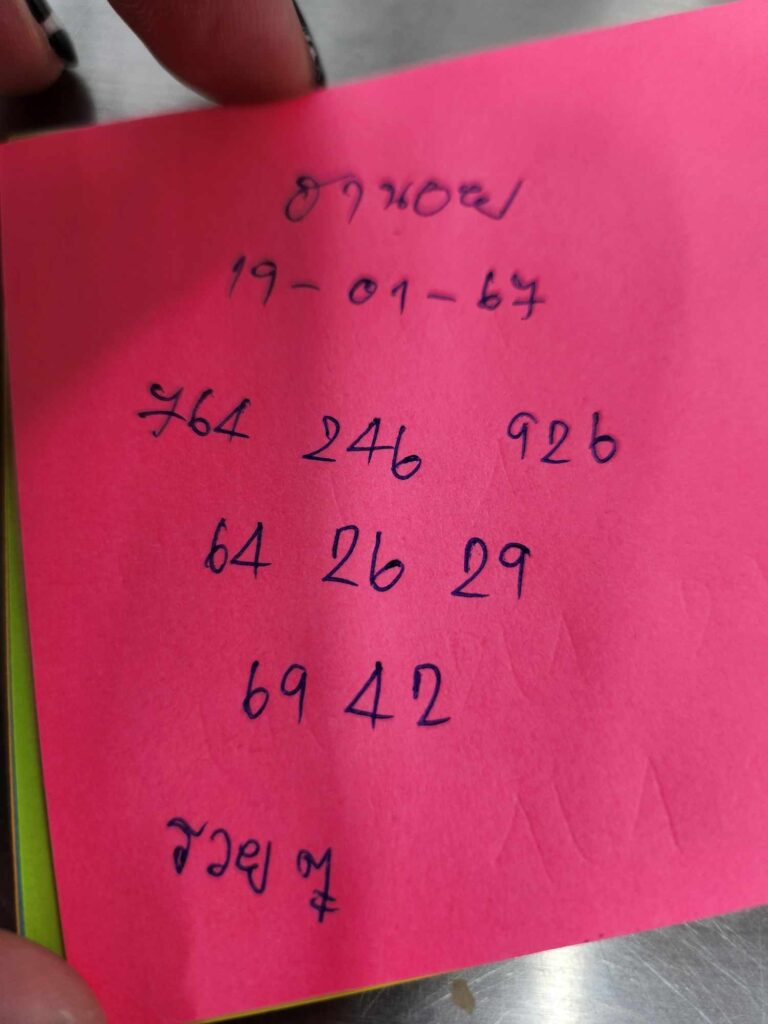 ฮานอย
19-01-67
764 246 926
64 26 29
69 42
รวยๆ